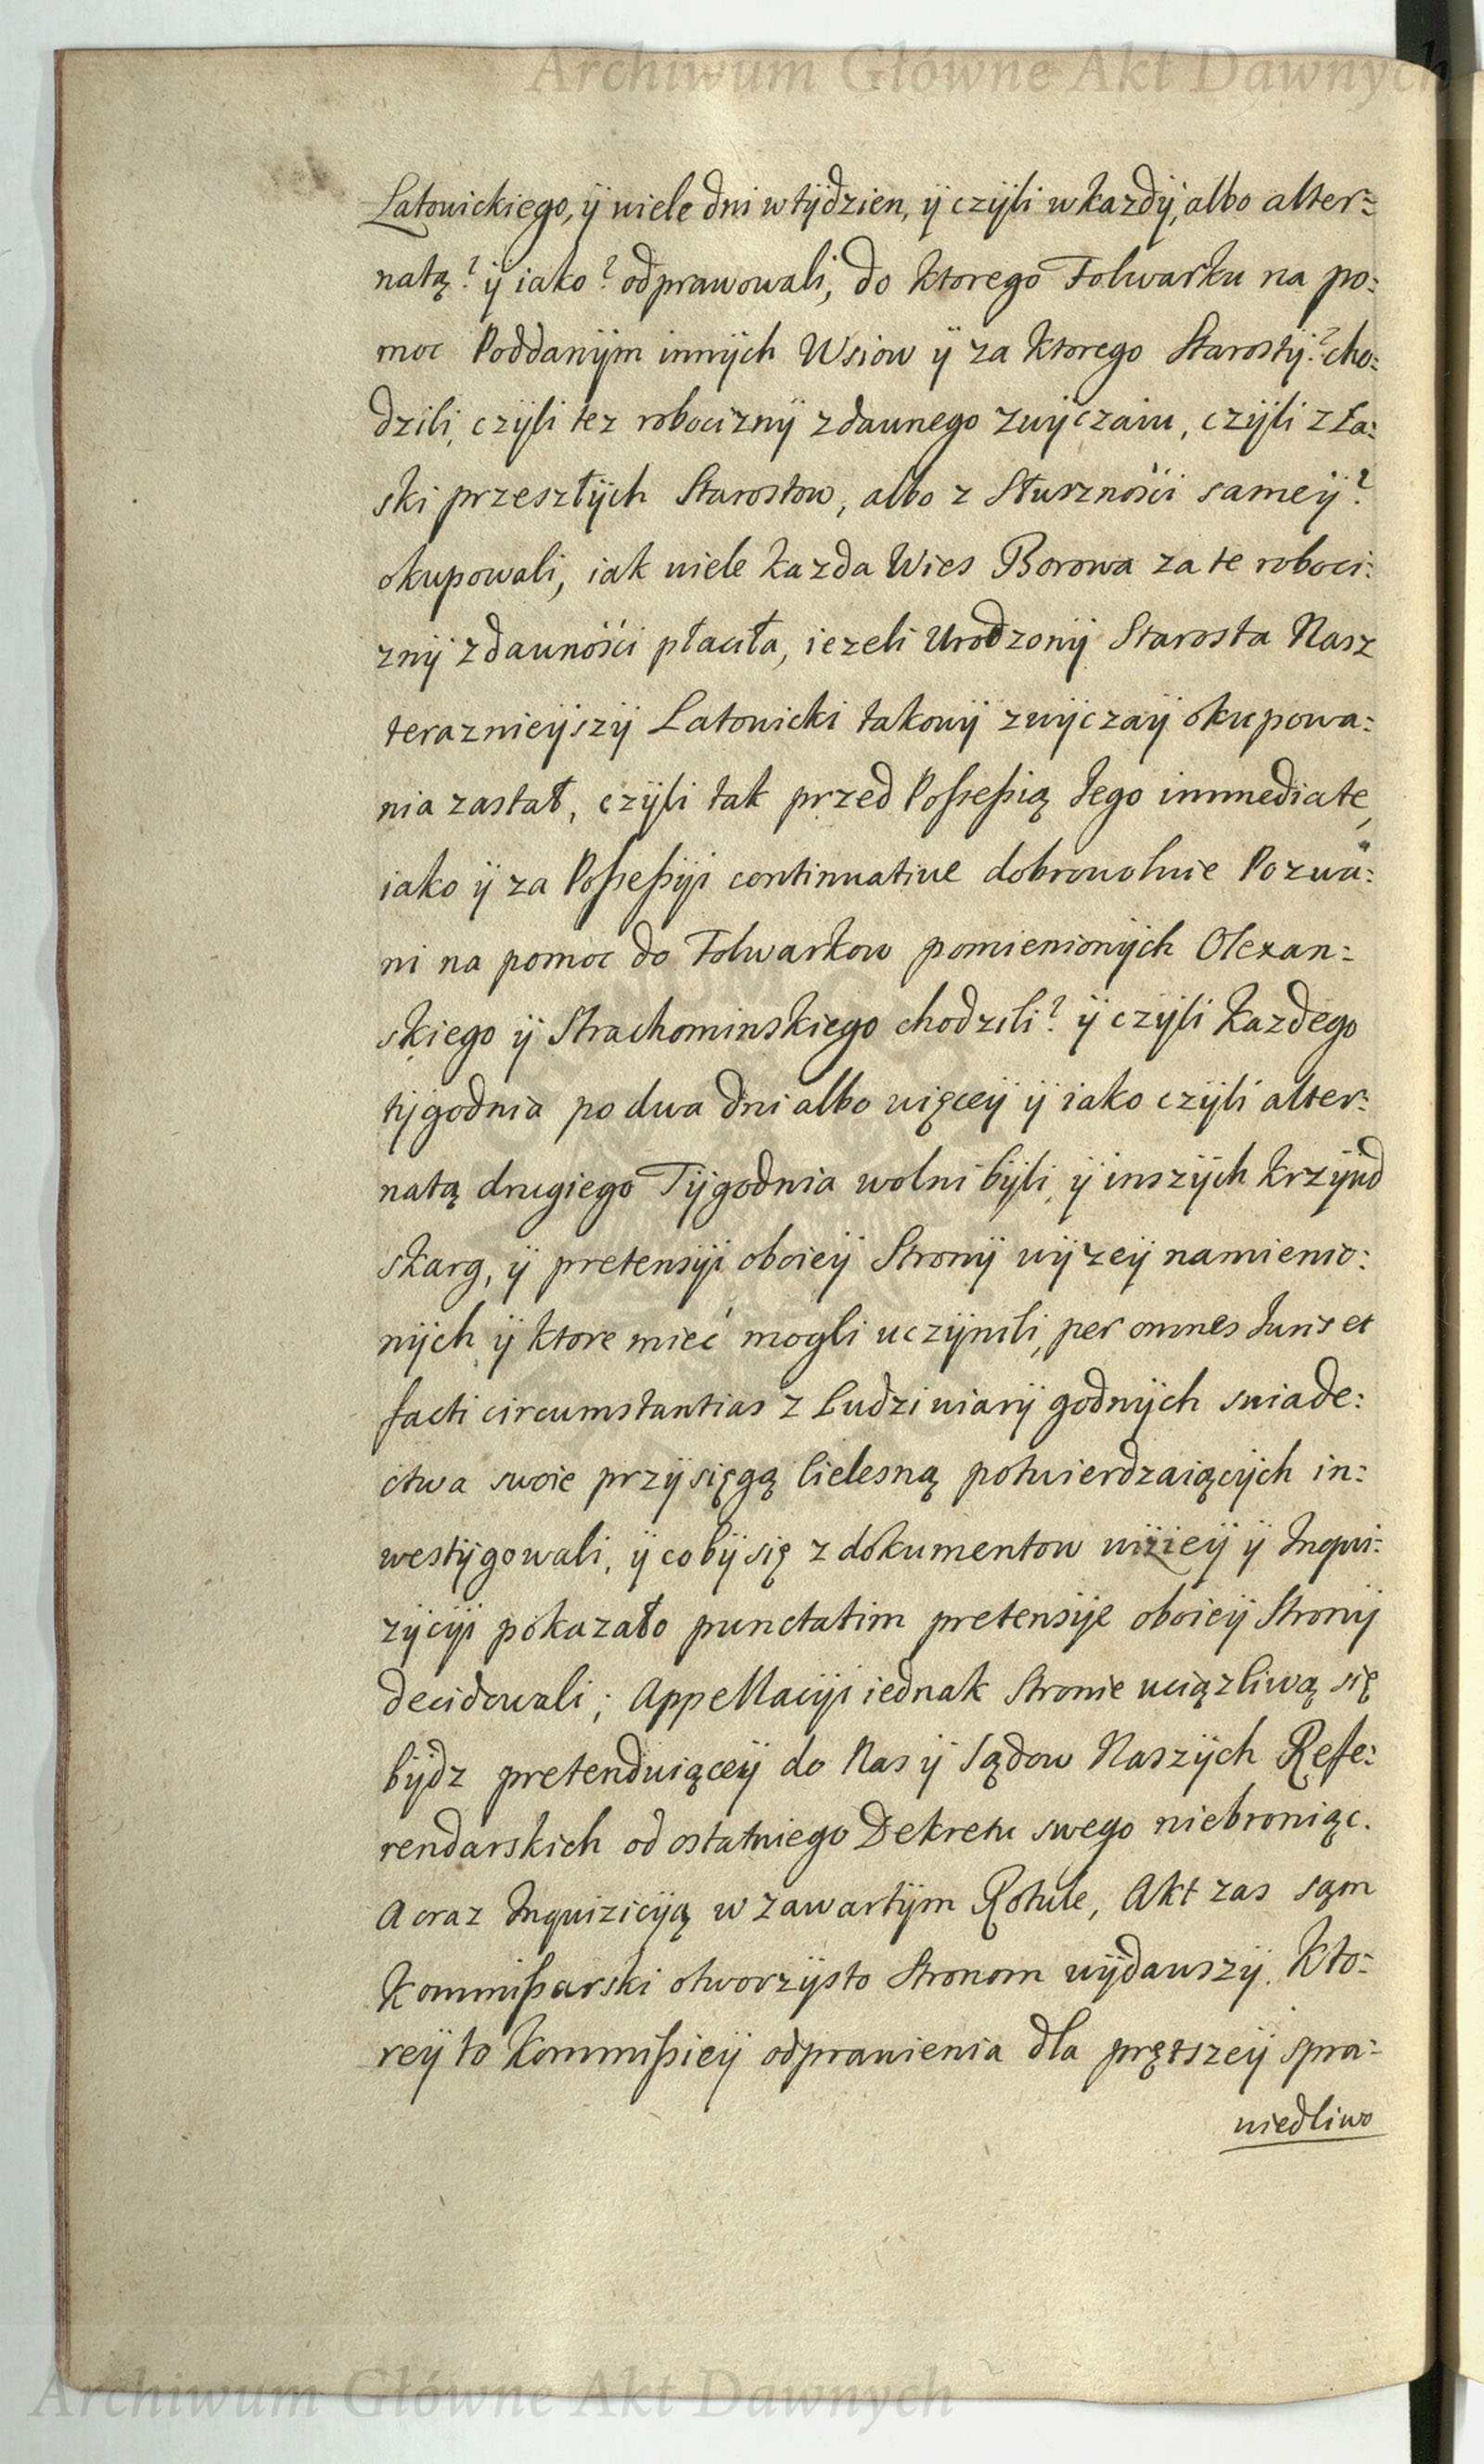 Archiwum Główne Akt Dawnych
Latowickiego, ÿ wiele dni w tÿdzien, ÿ czÿli w kazdÿ, albo alter=
natą? ÿ iako? odprawowali, do ktorego Folwarku na po:
moc Poddanÿm innÿch Wsiow ÿ za ktorego Starostÿ? cho:
dzili, czÿli tez robociznÿ z dawnego zwÿczaiu, czÿli z Ła:
ski przeszłÿch Starostow, albo z Słusznośći sameÿ?
okupowali, iak wiele kazda Wies Borowa za te roboci:
znÿ z dawnośći płaciła, iezeli Urodzonÿ Starosta Nasz
terazniejszÿ Latowicki takowÿ zwÿczaÿ okupowa:
nia zastał, czÿli tak przed Possessią Jego immediate,
iako ÿ za Possessÿi continuative dobrowolnie Pozwa:
ni na pomoc do Folwarkow pomienionÿch Olexan=
skiego ÿ Strachominskiego chodzili? ÿ czÿli kazdego
tÿgodnia po dwa dni albo więceÿ ÿ iako czÿli alter:
natą drugiego Tÿgodnia wolni bÿli, ÿ inszÿch krzÿwd
skarg, ÿ pretensÿi oboieÿ Stronÿ wÿzeÿ namienio:
nÿch ÿ ktore mieć mogli uczÿnili, per omnes Juris et
facti circumstantias z Ludzi wiarÿ godnÿch swiade:
ctwa swoie przÿsięgą Cielesną potwierdzaiącÿch in:
westÿgowali, ÿ co bÿ się z dokumentow wiżieÿ ÿ Inqui:
zÿcÿi pokazało punctatim pretensÿe oboieÿ Stronÿ
decidowali; Appellacÿi iednak Stronie uciązliwą się
bÿdz pretenduiąceÿ do Nas ÿ Sądow Naszÿch Refe:
rendarskich od ostatniego Dekretu swego niebroniąc.
A oraz Inquizicÿą w zawartÿm Rotule, Akt zas sąm
Kommissarski otworzÿsto Stronom wÿdawszÿ. Kto:
reÿ to Kommissieÿ odprawienia dla prętszeÿ spra=
wiedliwo
Archiwum Główne Akt Dawnych